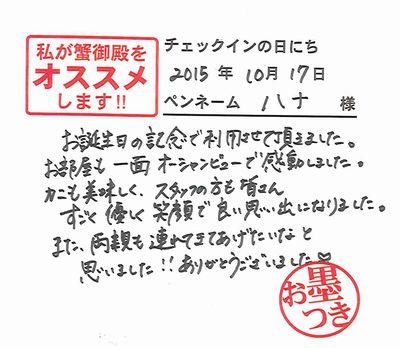 私が蟹御殿を
オススメ
します!!
チェックインの日にち
2015年 10月 17日
ペンネーム ハナ 様
お誕生日の記念で利用させて頂きました。
お部屋も一面オーシャンビューで感動しました。
カニも美味しく、スタッフの方も皆さん
すごく優しく笑顔で良い思い出になりました。
また、両親も連れてきてあげたいなと
思いました!!ありがとうございました♡
お墨つき